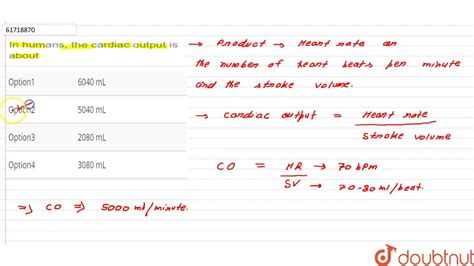 61718870
In humans, the cardiac output is
about
Option1 6040 mL
Option2 5040 mL
Option3 2080 mL
Option4 3080 mL
→ Product → Heart rate on
the number of heart beats per minute
and the stroke volume.
→ Cardiac output = Heart rate
Stroke volume
CO = HR → 70 bpm
SV → 70-80 ml/beat.
⇒ CO ⇒ 5000 ml/minute.
doubtnut